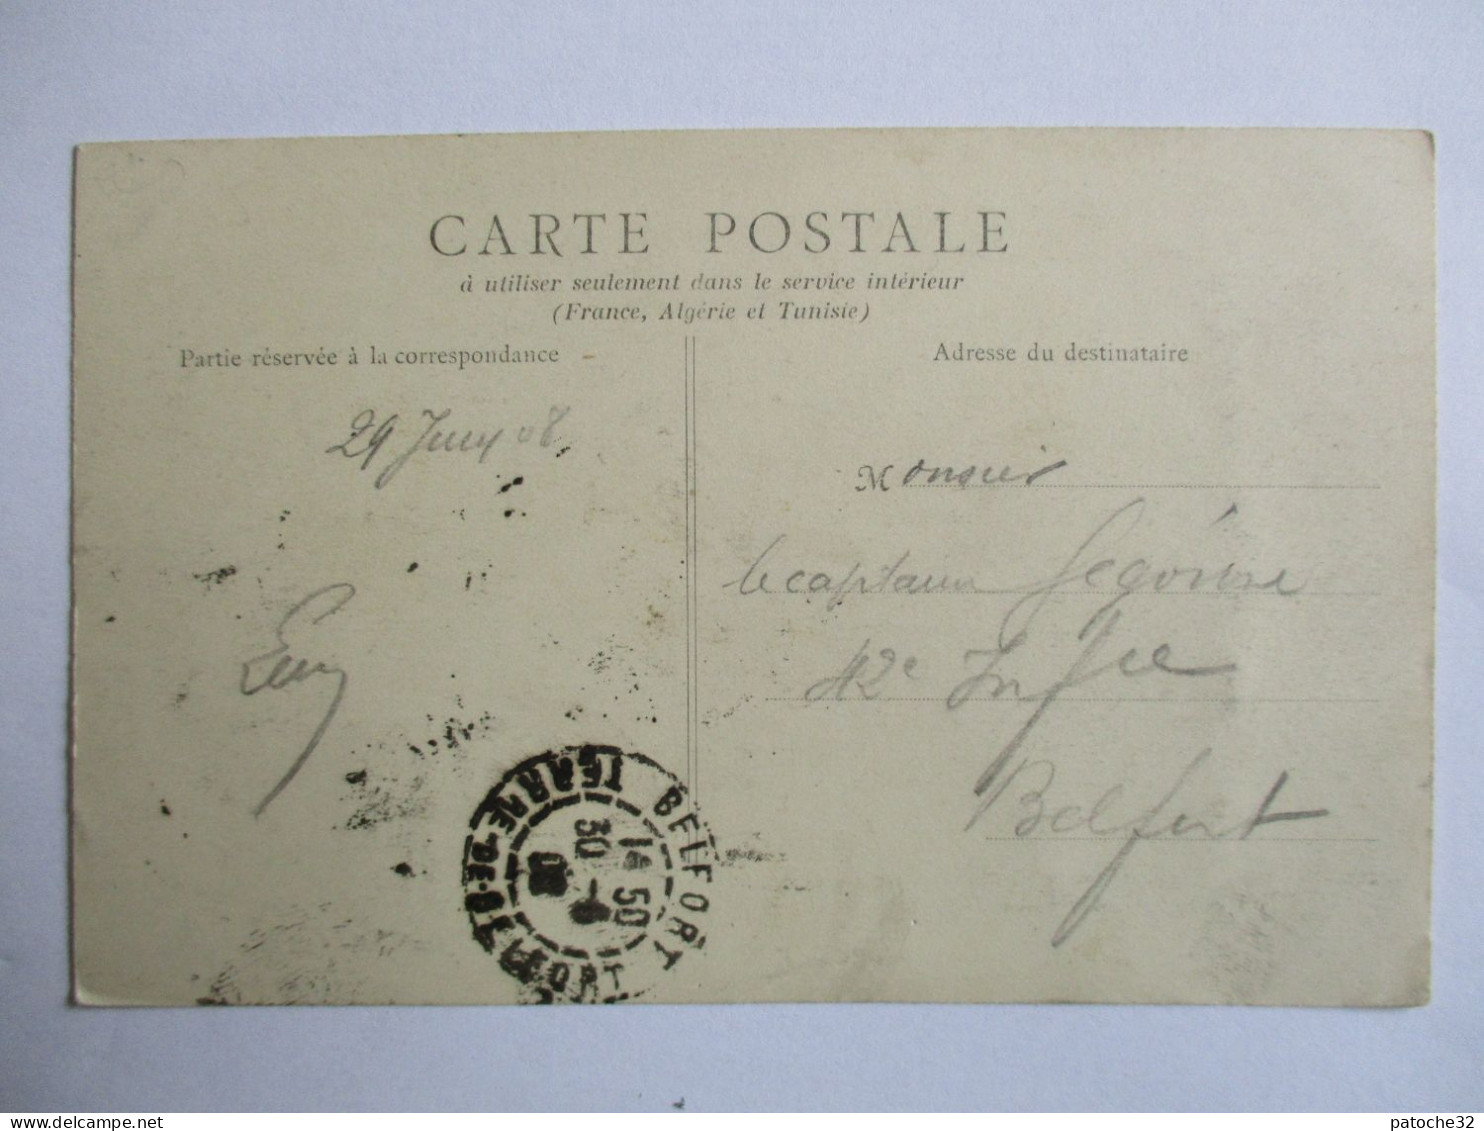 CARTE POSTALE
à utiliser seulement dans le service intérieur
(France, Algérie et Tunisie)
Partie réservée à la correspondance
Adresse du destinataire
29 Juin 08
Monsieur
le capitaine
42e Infie
Belfort
BELFORT
TERRE-DE-BELFORT
14 50
30 -6
08
patoche32